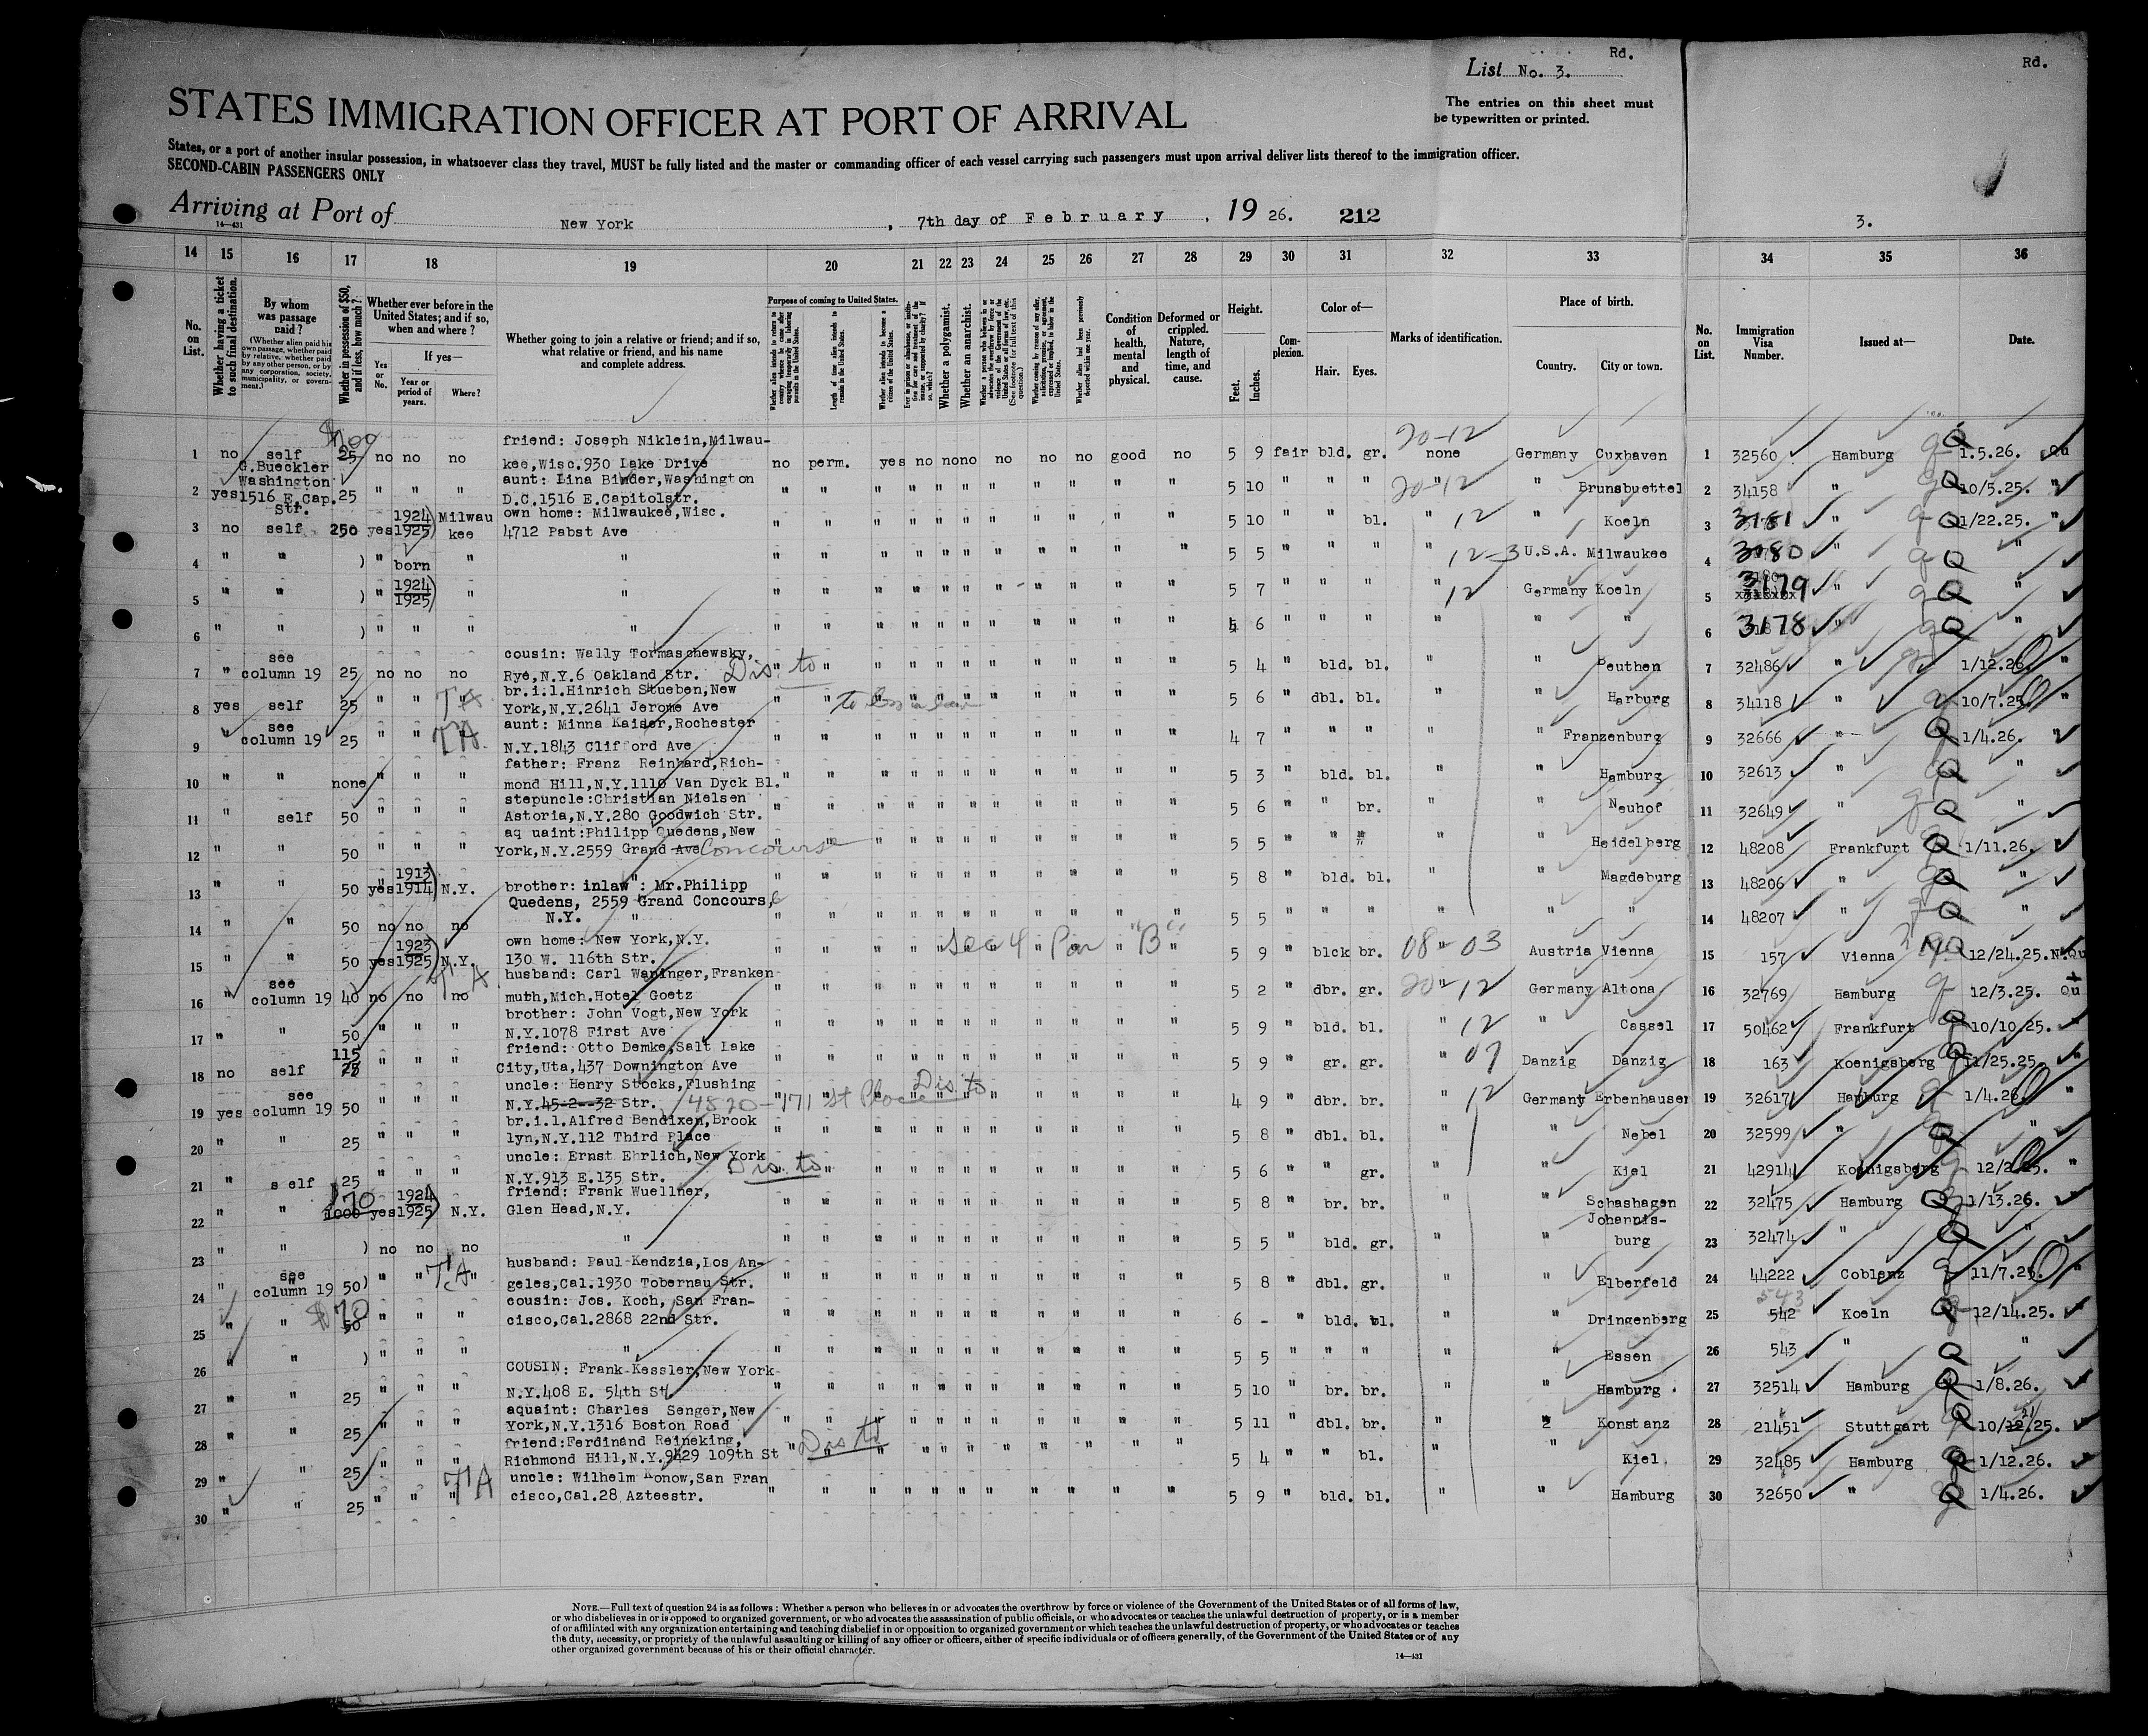 Rd.
List No. 3.
Rd.
The entries on this sheet must
be typewritten or printed.
STATES IMMIGRATION OFFICER AT PORT OF ARRIVAL
States, or a port of another insular possession, in whatsoever class they travel, MUST be fully listed and the master or commanding officer of each vessel carrying such passengers must upon arrival deliver lists thereof to the immigration officer.
SECOND-CABIN PASSENGERS ONLY
Arriving at Port of New York, 7th day of February, 19 26. 212
14—431
3.
14 15 16 17 18 19 20 21 22 23 24 25 26 27 28 29 30 31 32 33 34 35 36
No. on List.
Whether having a ticket to such final destination.
By whom was passage paid?
(Whether alien paid his own passage, whether paid by relative, whether paid by any other person, or by any corporation, society, municipality, or government.)
Whether in possession of $50, and if less, how much?
Whether ever before in the United States; and if so, when and where?
Yes or No.
If yes—
Year or period of years.
Where?
Whether going to join a relative or friend; and if so, what relative or friend, and his name and complete address.
Purpose of coming to United States.
Whether a polygamist.
Whether an anarchist.
Condition of health, mental and physical.
Deformed or crippled. Nature, length of time, and cause.
Height.
Feet. Inches.
Complexion.
Color of—
Hair. Eyes.
Marks of identification.
Place of birth.
Country. City or town.
No. on List.
Immigration Visa Number.
Issued at—
Date.
1 no self 25 no no no friend: Joseph Niklein,Milwau-
kee,Wisc.930 Lake Drive no perm. yes no no no no no no good no 5 9 fair bld. gr. 20-12 none Germany Cuxhaven 1 32560 Hamburg 1.5.26. Qu
2 yes G.Bueckler Washington 1516 E.Cap. Str. 25 " " " aunt: Lina Binder,Washington
D.C.1516 E.Capitolstr. " " " " " " " " " " " 5 10 " " " 20-12 " Brunsbuettel 2 34158 " 10/5.25. "
3 no self 250 yes 1924 1925) Milwau kee own home: Milwaukee,Wisc.
4712 Pabst Ave " " " " " " " " " " " 5 10 " " bl. " 12 " Koeln 3 3181 " 1/22.25. "
4 " " ) " born " " " " " " " " " " " " " 5 5 " " " " 12-3 U.S.A. Milwaukee 4 3180 " "
5 " " ) " 1924 1925) " " " " " " " " " " " " " 5 7 " " " " 12 Germany Koeln 5 3179 " "
6 " " ) " " " " " " " " " " " " " " " 5 6 " " " " " " 6 3178 " "
7 " see column 19 25 no no no cousin: Wally Tormaschewsky,
Rye,N.Y.6 Oakland Str. Dis. to " " " " " " " " " " " 5 4 " bld. bl. " " Beuthen 7 32486 " 1/12.26. "
8 yes self 25 " " " TA br.i.l.Hinrich Stueben,New
York,N.Y.2641 Jerome Ave " " " " " " " " " " " 5 6 " dbl. bl. " " Harburg 8 34118 " 10/7.25. "
9 " see column 19 25 " " TA. aunt: Minna Kaiser,Rochester
N.Y.1843 Clifford Ave " " " " " " " " " " " 4 7 " " " " " Franzenburg 9 32666 " 1/4.26. "
10 " " none " " " father: Franz Reinhard,Rich-
mond Hill,N.Y.1110 Van Dyck Bl. " " " " " " " " " " " 5 3 " bld. bl. " " Hamburg 10 32613 " " "
11 " self 50 " " " stepuncle:Christian Nielsen
Astoria,N.Y.280 Goodwich Str. " " " " " " " " " " " 5 6 " " br. " " Neuhof 11 32649 " "
12 " " 50 " " " aq uaint:Philipp Quedens,New
York,N.Y.2559 Grand Ave Concourse " " " " " " " " " " 5 5 " " " " " Heidelberg 12 48208 Frankfurt 1/11.26. "
13 " " 50 yes 1913 1914) N.Y. brother: inlaw": Mr.Philipp
Quedens, 2559 Grand Concours,e
N.Y. " " " " " " " " " " " 5 8 " bld. bl. " " Magdeburg 13 48206 " "
14 " " 50 no no no " " " " " " " " " " " " 5 5 " " " " " " 14 48207 " "
15 " " 50 yes 1923 1925) N.Y. own home: New York,N.Y.
130 W. 116th Str. Sec 4 Par "B" 5 9 " blck br. 08-03 Austria Vienna 15 157 Vienna 12/24.25. N.Qu
16 " see column 19 40 no no no TA. husband: Carl Waninger,Franken
muth,Mich.Hotel Goetz " " " " " " " " " " " 5 2 " dbr. gr. 20-12 Germany Altona 16 32769 Hamburg 12/3.25. Qu
17 " " 50 " " " brother: John Vogt,New York
N.Y.1078 First Ave " " " " " " " " " " " 5 9 " bld. bl. " 12 " Cassel 17 50462 Frankfurt 10/10.25. "
18 no self 115 25 " " " friend: Otto Demke,Salt Lake
City,Uta,437 Downington Ave " " " " " " " " " " " 5 9 " gr. gr. " 07 Danzig Danzig 18 163 Koenigsberg 11/25.25. "
19 yes see column 19 50 uncle: Henry Stocks,Flushing
N.Y.45-2--32 Str. 4820-171 st Place Dis. to 4 9 " dbr. br. 12 Germany Erbenhausen 19 32617 Hamburg 1/4.26. "
20 " " 25 " " " br.i.l.Alfred Bendixen,Brook
lyn,N.Y.112 Third Place " " " " " " " " " " " 5 8 " dbl. bl. " " Nebel 20 32599 " "
21 " s elf 25 " " " uncle: Ernst Ehrlich,New York
N.Y.913 E.135 Str. Dis. to " " " " " " " " " " 5 6 " " gr. " " Kiel 21 42914 Koenigsberg 12/2.25. "
22 " " 170 1000 yes 1924 1925) N.Y. friend: Frank Wuellner,
Glen Head,N.Y. " " " " " " " " " " " 5 8 " br. br. " " Schashagen 22 32475 Hamburg 1/13.26.
23 " " ) no no no " " " " " " " " " " " " 5 5 " bld. gr. " " Johannis-
burg 23 32474 " "
24 " see column 19 50) " " " T.A. husband: Paul Kendzia,Los An-
geles,Cal.1930 Tobernau Str. " " " " " " " " " " " 5 8 " dbl. gr. " " Elberfeld 24 44222 Coblenz 11/7.25. "
25 " " $70 50 " " " cousin: Jos. Koch, San Fran-
cisco,Cal.2868 22nd Str. " " " " " " " " " " " 6 - " bld. bl. " " Dringenberg 25 543 542 Koeln 12/14.25.
26 " " ) " " " " " " " " " " " " " " " 5 5 " " " " " Essen 26 543 " "
27 " " 25 " " " COUSIN: Frank Kessler,New York
N.Y.408 E. 54th St. " " " " " " " " " " " 5 10 " br. br. " " Hamburg 27 32514 Hamburg 1/8.26.
28 " " 25 " " " aquaint: Charles Senger,New
York,N.Y.1316 Boston Road " " " " " " " " " " " 5 11 " dbl. br. " " Konstanz 28 21451 Stuttgart 10/12.25. 21
29 " " 25 " " " friend:Ferdinand Reineking,
Richmond Hill,N.Y.9429 109th St Dis to " " " " " " " " " " 5 4 " " bl. " " Kiel. 29 32485 Hamburg 1/12.26.
30 " " 25 " " " TA uncle: Wilhelm Konow,San Fran
cisco,Cal.28 Azteestr. " " " " " " " " " " " 5 9 " bld. bl. " " Hamburg 30 32650 " 1/4.26.
NOTE.—Full text of question 24 is as follows: Whether a person who believes in or advocates the overthrow by force or violence of the Government of the United States or of all forms of law,
or who disbelieves in or is opposed to organized government, or who advocates the assassination of public officials, or who advocates or teaches the unlawful destruction of property, or is a member
of or affiliated with any organization entertaining and teaching disbelief in or opposition to organized government or which teaches the unlawful destruction of property, or who advocates or teaches
the duty, necessity, or propriety of the unlawful assaulting or killing of any officer or officers, either of specific individuals or of officers generally, of the Government of the United States or of any
other organized government because of his or their official character.
14—431